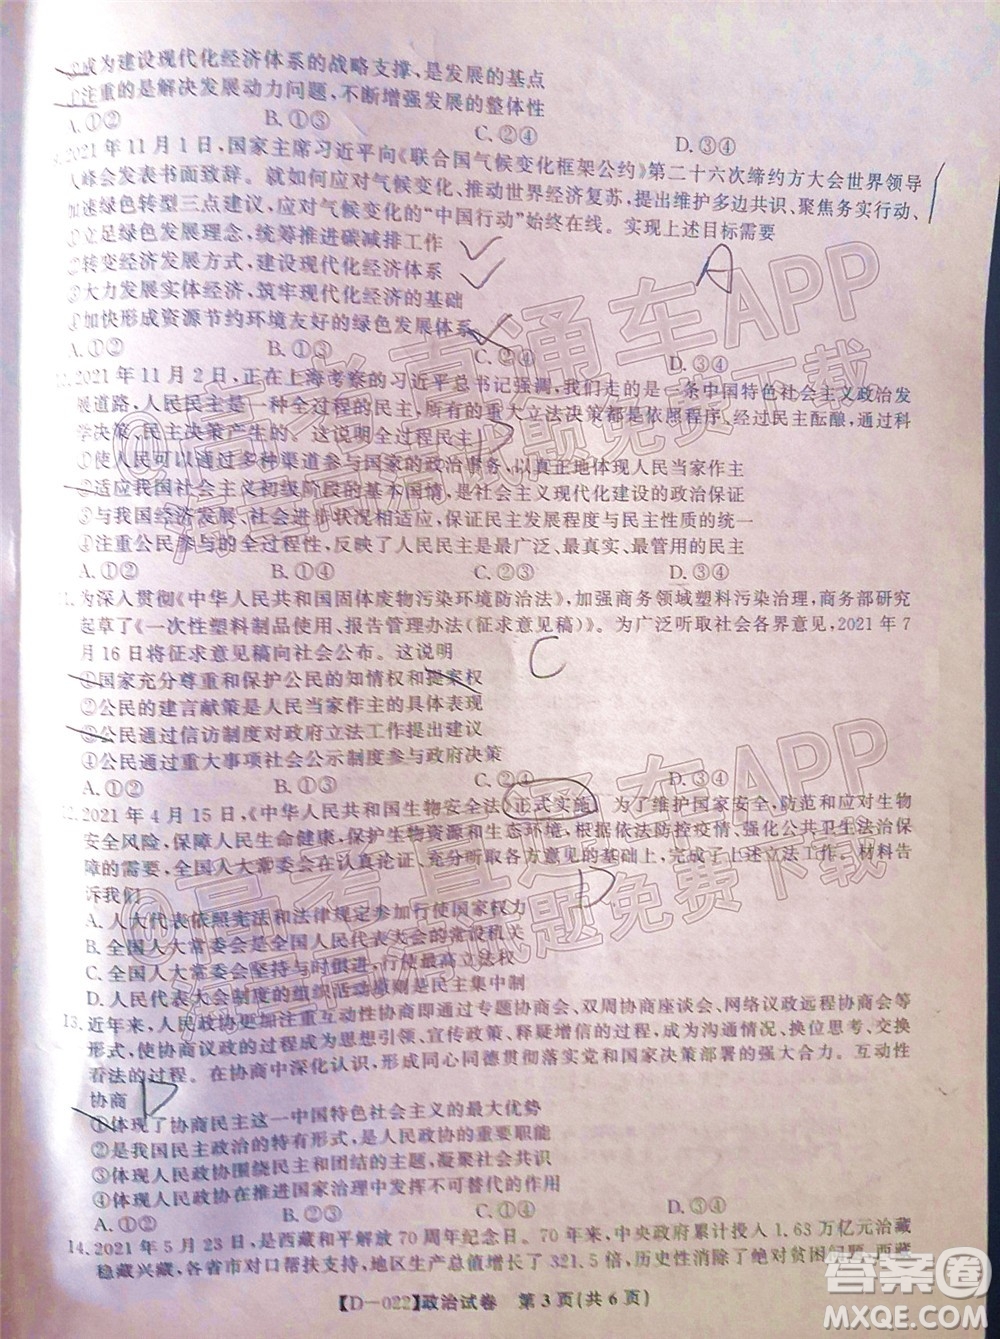 成为建设现代化经济体系的战略支撑,是发展的基点
注重的是解决发展动力问题,不断增强发展的整体性
A.①② B.①③ C.②④ D.③④
2021年11月1日,国家主席习近平向《联合国气候变化框架公约》第二十六次缔约方大会世界领导
人峰会发表书面致辞。就如何应对气候变化、推动世界经济复苏,提出维护多边共识、聚焦务实行动、
加速绿色转型三点建议,应对气候变化的“中国行动”始终在线。实现上述目标需要
①立足绿色发展理念,统筹推进碳减排工作
②转变经济发展方式,建设现代化经济体系
③大力发展实体经济,筑牢现代化经济的基础
④加快形成资源节约环境友好的绿色发展体系
A
A.①② B.①③ C.②④ D.③④
2021年11月2日,正在上海考察的习近平总书记强调,我们走的是一条中国特色社会主义政治发
展道路,人民民主是一种全过程的民主,所有的重大立法决策都是依照程序、经过民主酝酿,通过科
学决策、民主决策产生的。这说明全过程民主
①使人民可以通过多种渠道参与国家的政治事务,以真正地体现人民当家作主
②适应我国社会主义初级阶段的基本国情,是社会主义现代化建设的政治保证
③与我国经济发展、社会进步状况相适应,保证民主发展程度与民主发展阶段的统一
④注重公民参与的全过程性,反映了人民民主是最广泛、最真实、最管用的民主
A.①② B.①③ C.②④ D.③④
为深入贯彻《中华人民共和国固体废物污染环境防治法》,加强商务领域塑料污染治理,商务部研究
起草了《一次性塑料制品使用、报告管理办法(征求意见稿)》。为广泛听取社会各界意见,2021年7
月16日将征求意见稿向社会公布。这说明
C
①国家充分尊重和保护公民的知情权和提案权
②公民的建言献策是人民当家作主的具体表现
③公民通过信访制度对政府立法工作提出建议
④公民通过重大事项社会公示制度参与政府决策
A.①② B.①③ C.②④ D.③④
12.2021年4月15日,《中华人民共和国生物安全法》正式实施。为了维护国家安全,防范和应对生物
安全风险,保障人民生命健康,保护生物资源和生态环境,根据依法防控疫情、强化公共卫生法治保
障的需要,全国人大常委会在认真论证、充分听取各方意见的基础上,完成了上述立法工作。材料告
诉我们
D
A.人大代表依照宪法和法律规定参加行使国家权力
B.全国人大常委会是全国人民代表大会的常设机关
C.全国人大常委会坚持与时俱进,行使国家立法权
D.人民代表大会制度的组织活动原则是民主集中制
13.近年来,人民政协更加注重互动性协商即通过专题协商会、双周协商座谈会、网络议政远程协商会等
形式,使协商议政的过程成为思想引领、宣传政策、释疑增信的过程,成为沟通情况、换位思考、交换
看法的过程。在协商中深化认识,形成同心同德贯彻落实党和国家决策部署的强大合力。互动性
协商
D
①体现了协商民主这一中国特色社会主义的最大优势
②是我国民主政治的特有形式,是人民政协的重要职能
③体现人民政协围绕民主和团结的主题,凝聚社会共识
④体现人民政协在推进国家治理中发挥不可替代的作用
A.①② B.②③ C.①④ D.③④
14.2021年5月23日,是西藏和平解放70周年纪念日。70年来,中央政府累计投入1.63万亿元治藏
稳藏兴藏,各省市对口帮扶支持,地区生产总值增长了321.5倍,历史性消除了绝对贫困问题,西藏
【D—022】政治试卷 第3页(共6页)
高考直通车APP
海量试题免费下载
高考直通车APP
海量试题免费下载
答案圈
MXQE.COM